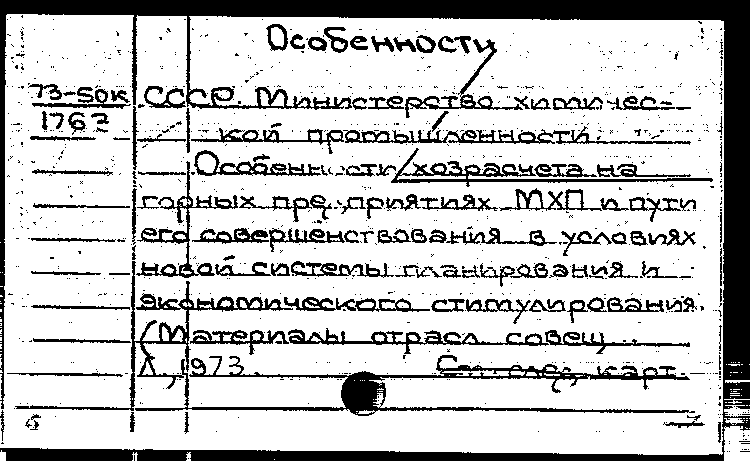 Особенности
73-50к СССР. Министерство химичес-
1762 кой промышленности.
Особенности хозрасчета на
горных предприятиях МХП и пути
его совершенствования в условиях
новой системы планирования и
экономического стимулирования.
(Материалы отрасл. совещ.
Л., 1973. См. след. карт.
6